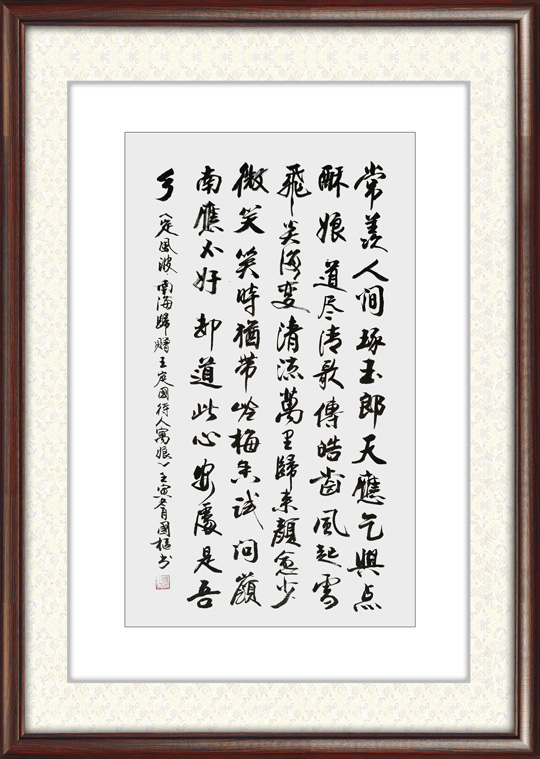 常羡人间琢玉郎天應乞與点
酥娘道尽清歌傳皓齒風起雪
飛炎海变清凉萬里歸来顏愈少
微笑笑時猶带岭梅香试问嶺
南應不好却道此心安處是吾
乡《定風波 南海歸赠王定國侍人寓娘》壬寅月國樞书